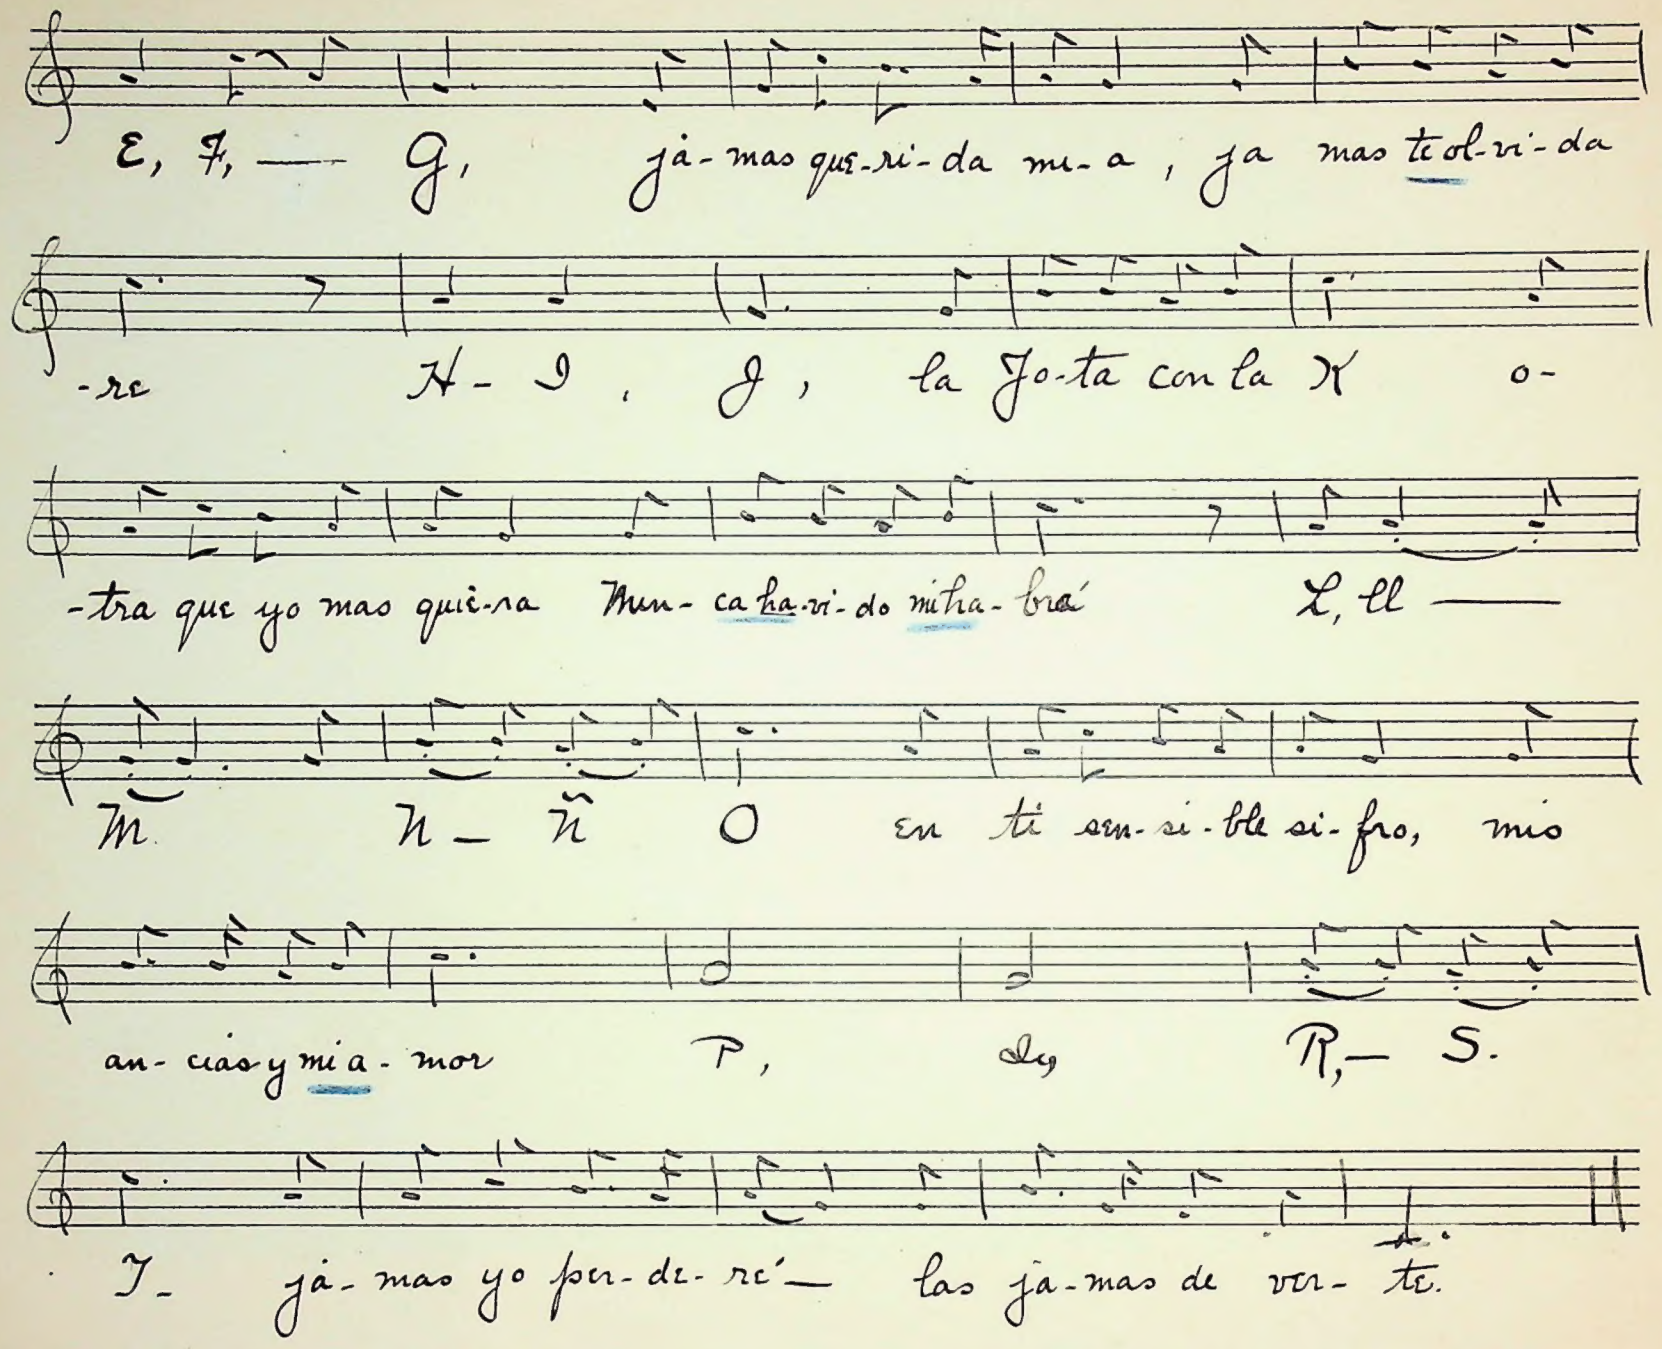 E, F, — G, já-mas que-ri-da mi-a, ja mas te ol-vi-da
-re H- I, J, la Jo-ta con la K o-
-tra que yo mas quie-ra Nun-ca ha-vi-do ni ha-brá L, ll —
M. N — Ñ O En ti sen-si-ble si-fro, mis
an-cias y mi a-mor P, Q, R, — S.
T- já-mas yo per-de-ré — las ja-mas de ver-te.